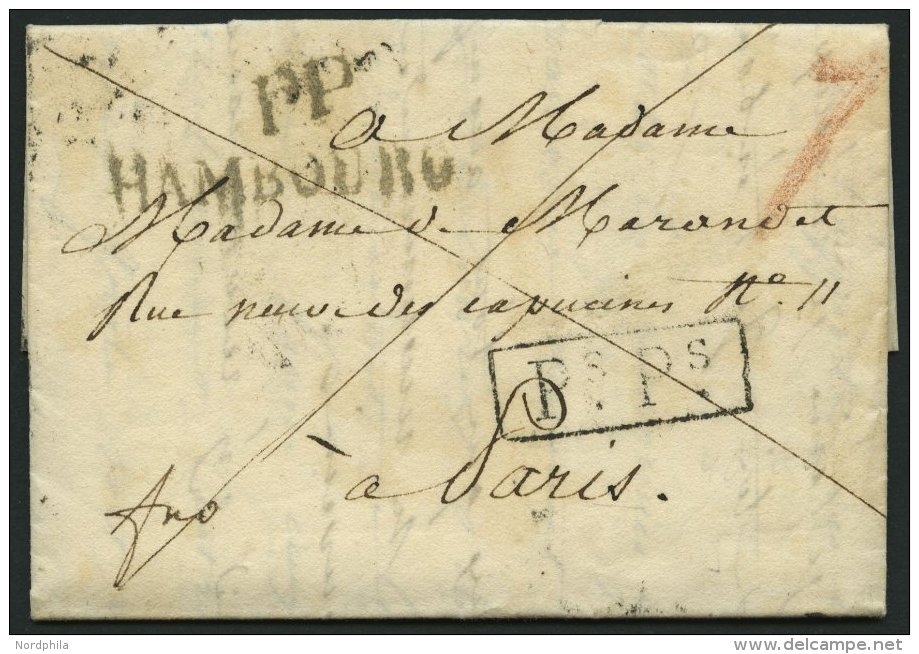 PP
HAMBOURG
7
a Madame
Madame de Marandet
Rue neuve des capucines No. 11
Ps. Ps.
à Paris.
fro
Nordphila
delcampe.net